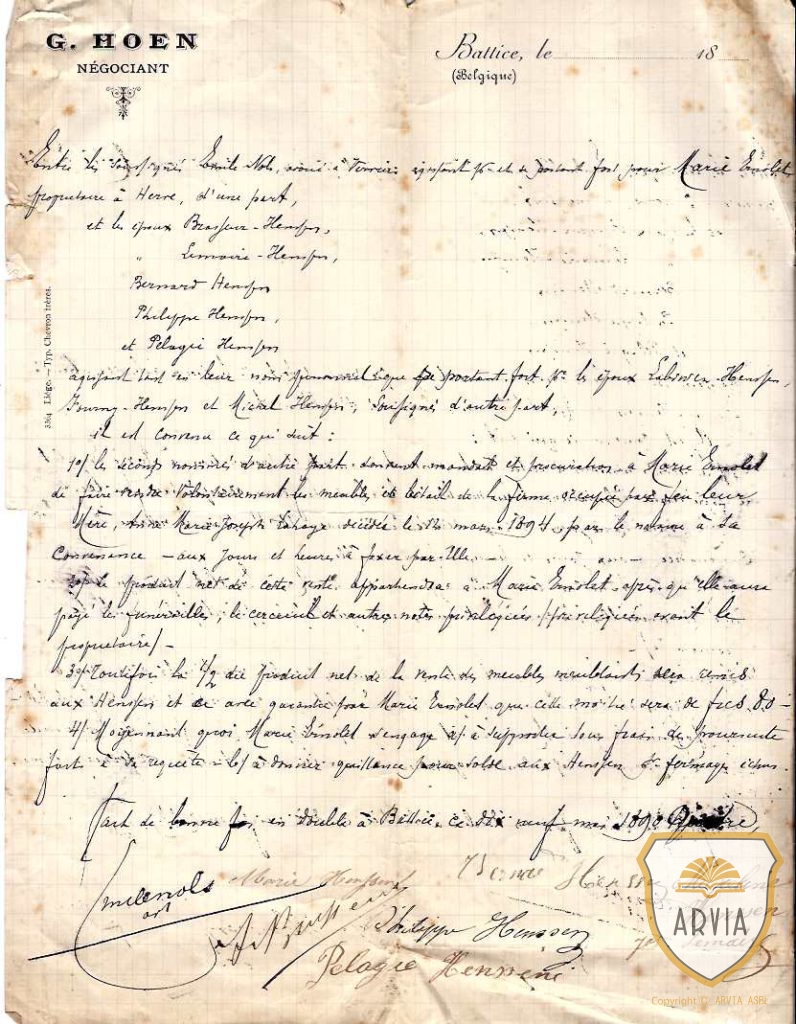 G. HOEN
NÉGOCIANT
Battice, le 18
(Belgique)
Entre les soussignés Emile Nols, avoué à Verviers agissant pr et se portant fort pour Marie Ernolet
propriétaire à Herve, d'une part,
et les époux Brasseur-Henssen,
" Lemaire-Henssen,
Bernard Henssen
Philippe Henssen,
et Pélagie Henssen
agissant tant en leur nom personnel que se portant fort pr les époux Henssen,
Henssen et Michel Henssen, soussignés d'autre part,
il est convenu ce qui suit :
1o/ les seconds nommés d'autre part donnent mandat et procuration à Marie Ernolet
de faire vendre volontairement les meubles et bétail de la ferme occupée par feu leur
Mère, Anne Marie Joseph Lahaye décédée le 12 mars 1894 par le notaire à sa
Convenance – aux jours et heures à fixer par Elle.
2o/ le produit net de cette vente appartiendra à Marie Ernolet après qu'elle aura
payé les funérailles, le cercueil et autres notes privilégiées (privilégiées avant le
propriétaire) –
3o/ Toutefois la 1/2 du produit net de la vente des meubles meublants sera remis
aux Henssen et ce avec garantie par Marie Ernolet que cette moitié sera de frcs 80 –
4/ Moyennant quoi Marie Ernolet s'engage a/ à supporter tous frais de poursuite
fait à sa requête – b/ à donner quittance pour solde aux Henssen de fermages échus.
Fait de bonne foi en double à Battice, ce dix neuf mai 189
Emile Nols
Marie Henssen
Bernard Henssen
Philippe Henssen
Pelagie Henssen
3364 Liége. — Typ. Chevron frères.
ARVIA
Copyright © ARVIA ASBL